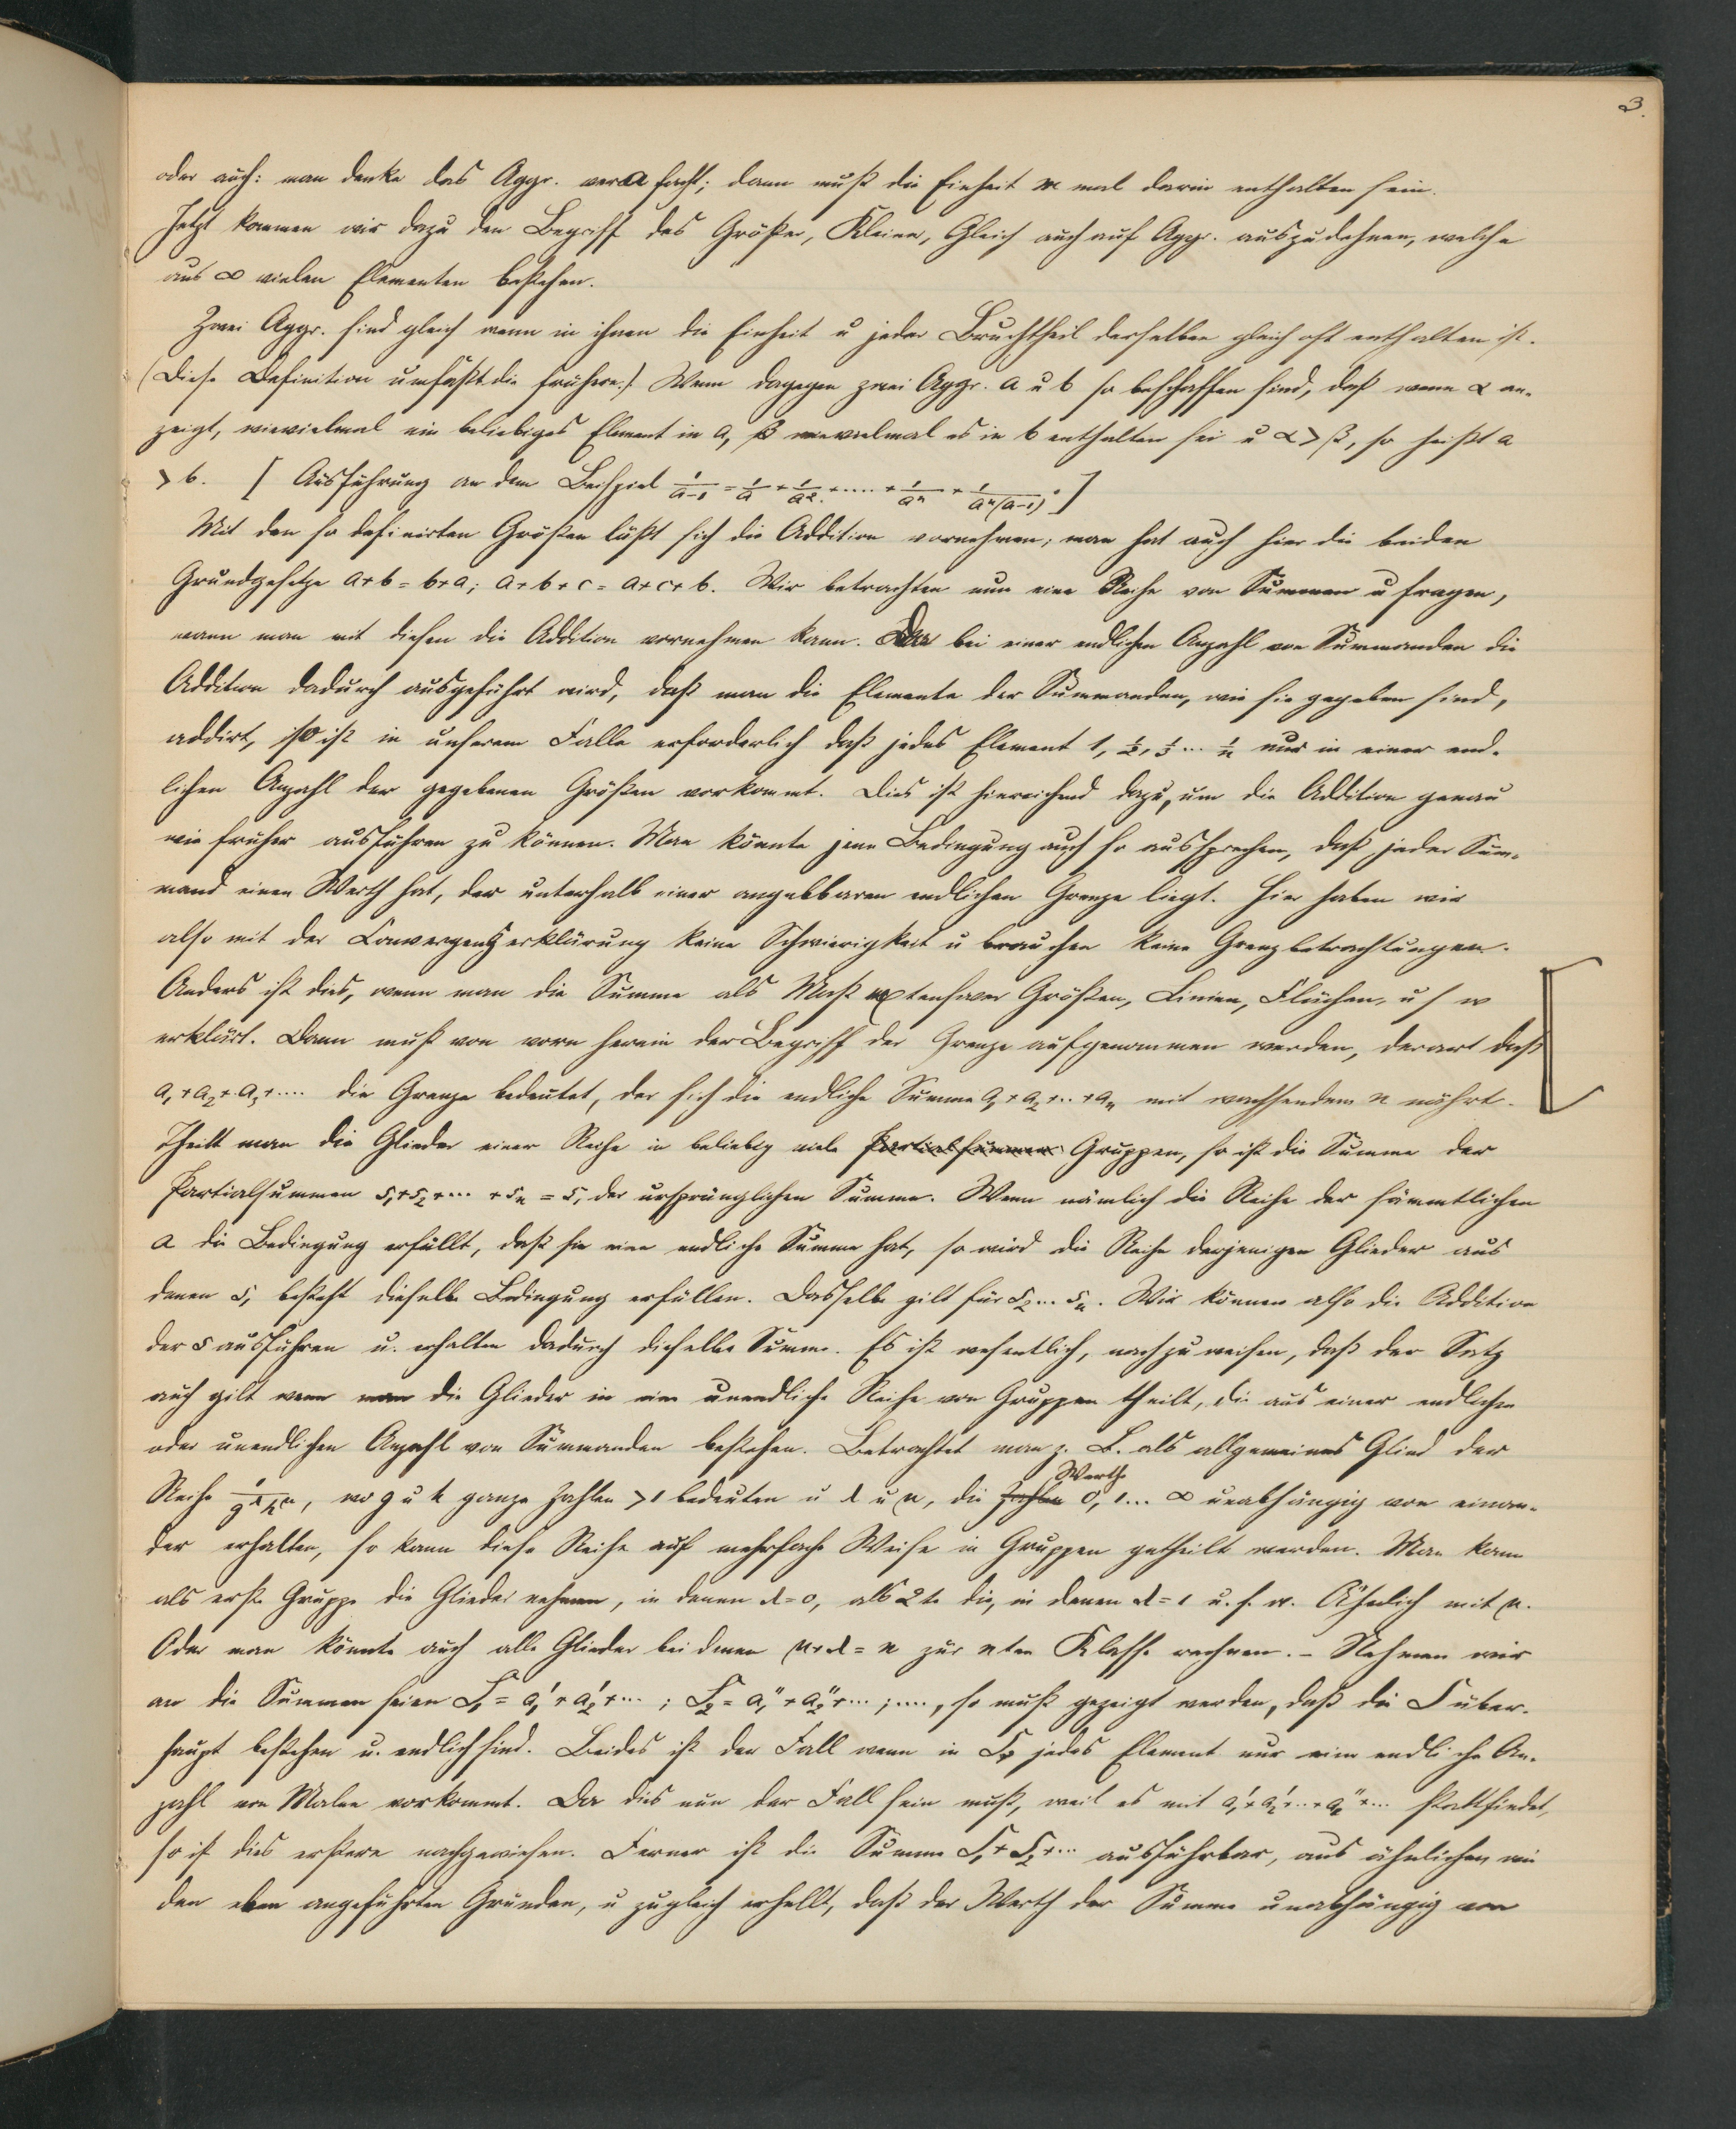 3.
oder auch: man denke das Aggr. ver a facht; dann muß die Einheit m mal darin enthalten sein.
Jetzt kommen wir dazu den Begriff des Größer, Kleiner, Gleich auch auf Aggr. auszudehnen, welche
aus ∞ vielen Elementen bestehen.
Zwei Aggr. sind gleich wenn in ihnen die Einheit u jeder Bruchtheil derselben gleich oft enthalten ist.
(Diese Definition umfaßt die frühere.) Wenn dagegen zwei Aggr. a u b so beschaffen sind, daß wenn α an-
zeigt, wievielmal ein beliebiges Element in a, β wievielmal es in b enthalten sei u α > β, so heißt a
> b. [ Ausführung an dem Beispiel 1/(a-1) = 1/a + 1/a² + .... + 1/aⁿ + 1/(aⁿ(a-1)). ]
Mit den so definirten Größen läßt sich die Addition vornehmen; man hat auch hier die beiden
Grundgesetze a+b = b+a; a+b+c = a+c+b. Wir betrachten nun eine Reihe von Summen u fragen,
wann man mit diesen die Addition vornehmen kann. Da bei einer endlichen Anzahl von Summanden die
Addition dadurch ausgeführt wird, daß man die Elemente der Summanden, wie sie gegeben sind,
addirt, so ist in unserem Falle erforderlich daß jedes Element 1, 1/2, 1/3 ... 1/n nur in einer end-
lichen Anzahl der gegebenen Größen vorkommt. Dies ist hinreichend dazu, um die Addition genau
wie früher ausführen zu können. Man könnte jene Bedingung auch so aussprechen, daß jeder Sum-
mand einen Werth hat, der unterhalb einer angebbaren endlichen Grenze liegt. Hier haben wir
also mit der Convergenzerklärung keine Schwierigkeit u brauchen keine Grenzbetrachtungen.
Anders ist dies, wenn man die Summe als Maß extensiver Größen, Linien, Flächen, u s w
erklärt. Dann muß von vorn herein der Begriff der Grenze aufgenommen werden, derart daß
a₁+a₂+a₃+.... die Grenze bedeutet, der sich die endliche Summe a₁+a₂+..+aₙ mit wachsendem n nährt.
Theilt man die Glieder einer Reihe in beliebig viele Partialsummen Gruppen, so ist die Summe der
Partialsummen s₁+s₂+... +sₙ = s, der ursprünglichen Summe. Wenn nämlich die Reihe der sämmtlichen
a die Bedingung erfüllt, daß sie eine endliche Summe hat, so wird die Reihe derjenigen Glieder aus
denen s₁ besteht dieselbe Bedingung erfüllen. Dasselbe gilt für s₂...sₙ. Wir können also die Addition
der s ausführen u. erhalten dadurch dieselbe Summe. Es ist wesentlich, nachzuweisen, daß der Satz
auch gilt wenn man die Glieder in eine unendliche Reihe von Gruppen theilt, die aus einer endlichen
oder unendlichen Anzahl von Summanden bestehen. Betrachtet man z. B. als allgemeines Glied der
Reihe 1/(g^λ h^μ), wo g u h ganze Zahlen >1 bedeuten u λ u μ, die Zahlen Werthe 0, 1... ∞ unabhängig von einan-
der erhalten, so kann diese Reihe auf mehrfache Weise in Gruppen getheilt werden. Man kann
als erste Gruppe die Glieder nehmen, in denen λ=0, als 2te die, in denen λ=1 u. s. w. Ähnlich mit μ.
Oder man könnte auch alle Glieder bei denen μ+λ = n zur nten Klasse rechnen. – Nehmen wir
an die Summen seien S₁ = a₁'+a₂'+... ; S₂ = a₁''+a₂''+... ; ...., so muß gezeigt werden, daß die S über-
haupt bestehen u. endlich sind. Beides ist der Fall wenn in Sᵣ jedes Element nur eine endliche An-
zahl von Malen vorkommt. Da dies nun der Fall sein muß, weil es mit a₁'+a₂'+..+a₁''+... stattfindet,
so ist dies erstere nachgewiesen. Ferner ist die Summe S₁+S₂+... ausführbar, aus ähnlichen wie
den eben angeführten Gründen, u zugleich erhellt, daß der Werth der Summe unabhängig von